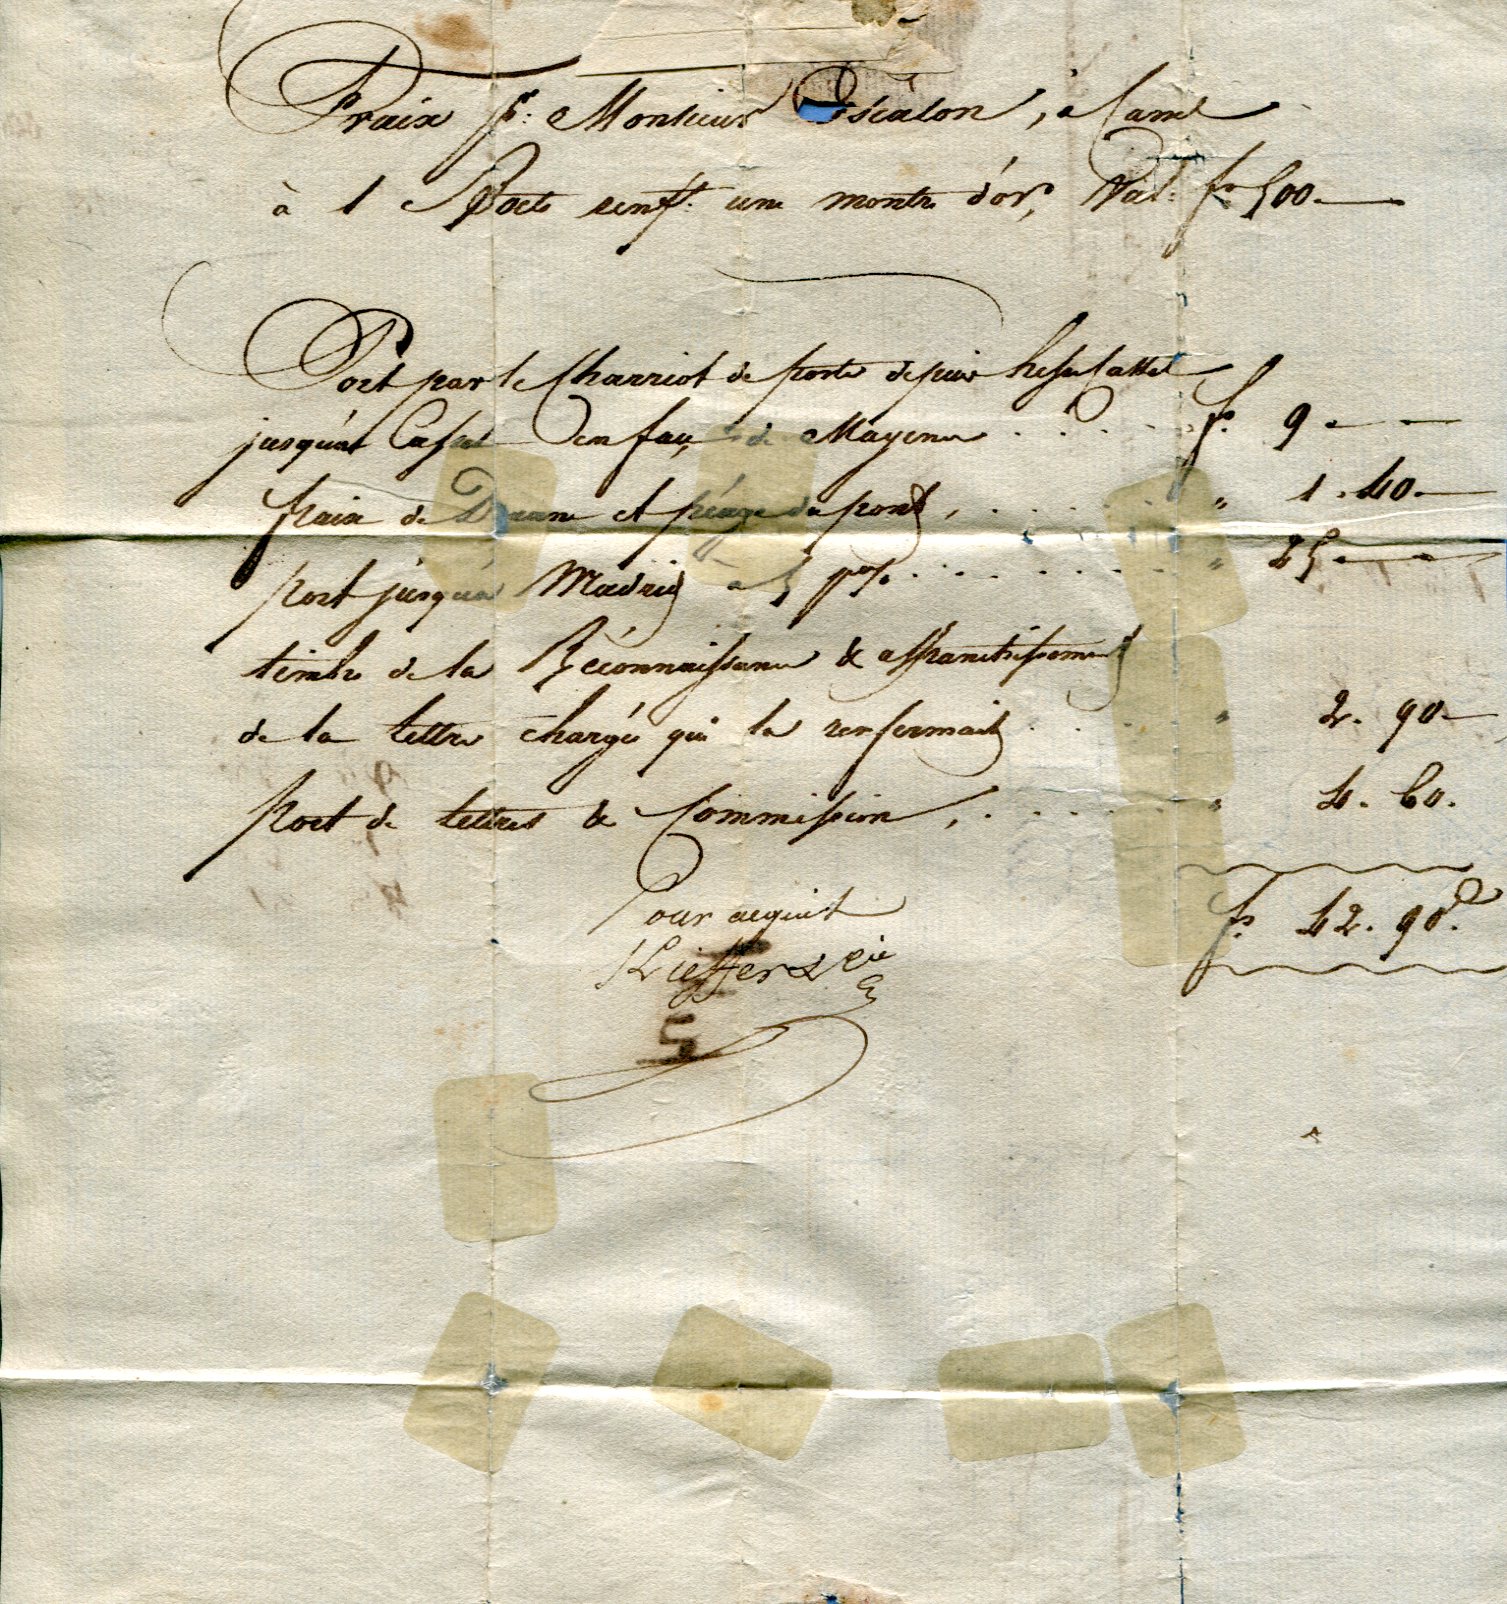 Fraix pr: Monsieur Escalon, à
à 1 Boete renft: une montre d'or, Val: fr 500.—
Port par le Charriot de poste depuis
jusqu'à Cassel en face de Mayence . . . . . fr. 9.—
fraix de Douane et péage du pont, . . . . . . " 1.40.—
port jusqu'à Madrid à 5 p% . . . . . . . . " 25.—
timbre de la Réconnaissance & affranchissement
de la lettre chargée qui la renfermait . . . . " 2.90.—
Port de lettres & Commission, . . . . . . " 4.60.
fr. 42.90.
Pour acquit
Kieffer & Cie
5